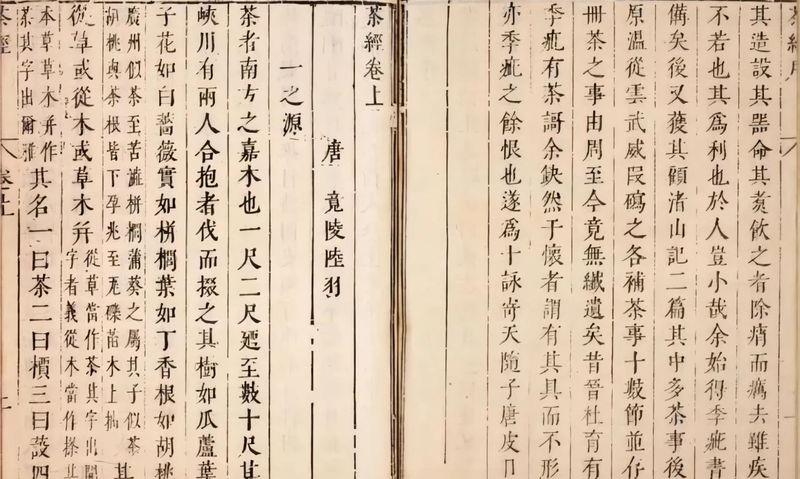 其造設其噐命其煑飲之者除痟而癘去雖疾
不若也其爲利也於人豈小哉余始得季疵書
備矣後又獲其顧渚山記二篇其中多茶事後
原溫從雲武威段碣之各補茶事十數節並存
冊茶之事由周至今竟無纖遺矣昔晉杜育有
季疵有茶謌余缺然于懷者謂有其具而不形
亦季疵之餘恨也遂爲十詠寄天隨子唐皮日
茶經卷上
唐 竟陵陸羽
一之源
茶者南方之嘉木也一尺二尺廼至數十尺其
峽川有兩人合抱者伐而掇之其樹如瓜蘆葉
子花如白薔薇實如栟櫚葉如丁香根如胡桃
廣州似茶至苦澁栟櫚蒲葵之屬其子似茶
胡桃與茶根皆下孕兆至瓦礫苗木上抽 其
從草或從木或草木并 從草當作茶其字出開
字者義從木當作搽其
本草草木并作
荼其字出爾雅 其名一曰茶二曰檟三曰蔎四
茶經 卷上